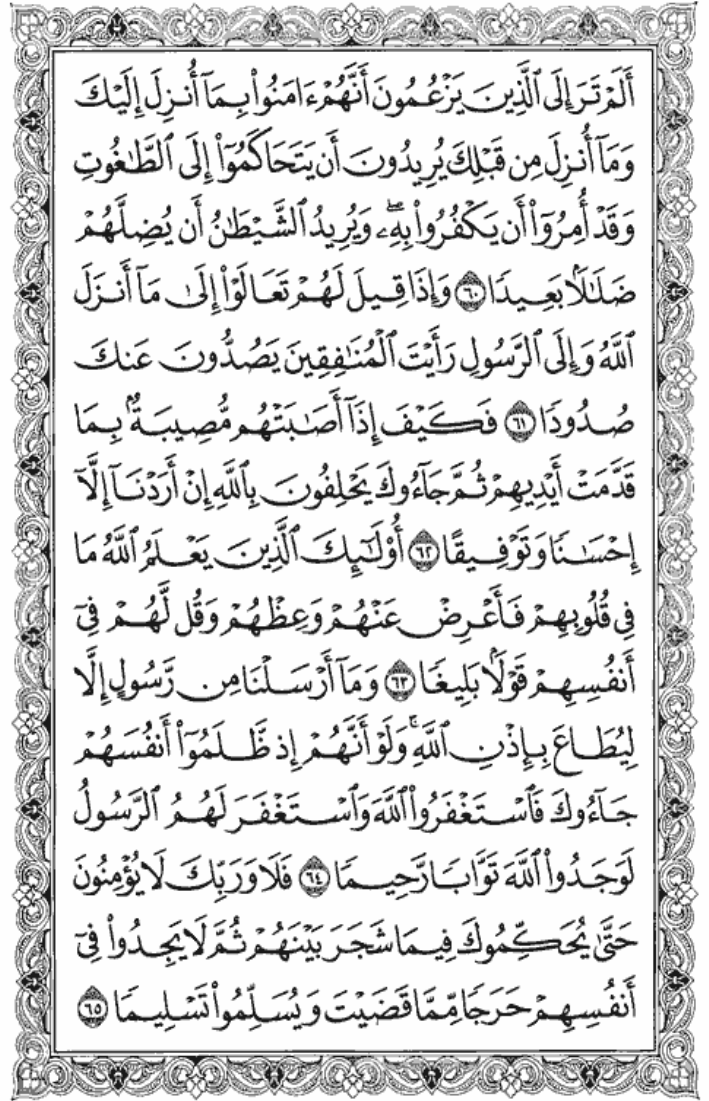 أَلَمْ تَرَ إِلَى ٱلَّذِينَ يَزْعُمُونَ أَنَّهُمْ ءَامَنُوا۟ بِمَآ أُنزِلَ إِلَيْكَ
وَمَآ أُنزِلَ مِن قَبْلِكَ يُرِيدُونَ أَن يَتَحَاكَمُوٓا۟ إِلَى ٱلطَّـٰغُوتِ
وَقَدْ أُمِرُوٓا۟ أَن يَكْفُرُوا۟ بِهِۦۖ وَيُرِيدُ ٱلشَّيْطَـٰنُ أَن يُضِلَّهُمْ
ضَلَـٰلًۢا بَعِيدًا ٦٠ وَإِذَا قِيلَ لَهُمْ تَعَالَوْا۟ إِلَىٰ مَآ أَنزَلَ
ٱللَّهُ وَإِلَى ٱلرَّسُولِ رَأَيْتَ ٱلْمُنَـٰفِقِينَ يَصُدُّونَ عَنكَ
صُدُودًا ٦١ فَكَيْفَ إِذَآ أَصَـٰبَتْهُم مُّصِيبَةٌۢ بِمَا
قَدَّمَتْ أَيْدِيهِمْ ثُمَّ جَآءُوكَ يَحْلِفُونَ بِٱللَّهِ إِنْ أَرَدْنَآ إِلَّآ
إِحْسَـٰنًا وَتَوْفِيقًا ٦٢ أُو۟لَـٰٓئِكَ ٱلَّذِينَ يَعْلَمُ ٱللَّهُ مَا
فِى قُلُوبِهِمْ فَأَعْرِضْ عَنْهُمْ وَعِظْهُمْ وَقُل لَّهُمْ فِىٓ
أَنفُسِهِمْ قَوْلًۢا بَلِيغًا ٦٣ وَمَآ أَرْسَلْنَا مِن رَّسُولٍ إِلَّا
لِيُطَاعَ بِإِذْنِ ٱللَّهِۚ وَلَوْ أَنَّهُمْ إِذ ظَّلَمُوٓا۟ أَنفُسَهُمْ
جَآءُوكَ فَٱسْتَغْفَرُوا۟ ٱللَّهَ وَٱسْتَغْفَرَ لَهُمُ ٱلرَّسُولُ
لَوَجَدُوا۟ ٱللَّهَ تَوَّابًا رَّحِيمًا ٦٤ فَلَا وَرَبِّكَ لَا يُؤْمِنُونَ
حَتَّىٰ يُحَكِّمُوكَ فِيمَا شَجَرَ بَيْنَهُمْ ثُمَّ لَا يَجِدُوا۟ فِىٓ
أَنفُسِهِمْ حَرَجًا مِّمَّا قَضَيْتَ وَيُسَلِّمُوا۟ تَسْلِيمًا ٦٥